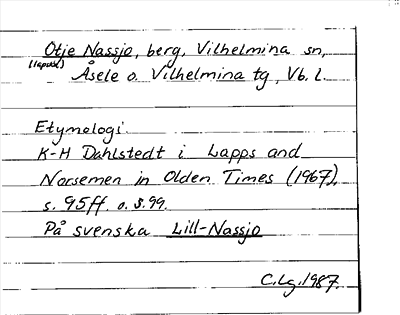 Otje Nassjo, berg, Vilhelmina sn,
(lapska) Åsele o. Vilhelmina tg, Vb. l.
Etymologi.
K-H Dahlstedt i Lapps and
Norsemen in Olden Times (1967),
s. 95ff. o. s. 99.
På svenska Lill-Nassjo
C.Lg. 1987.